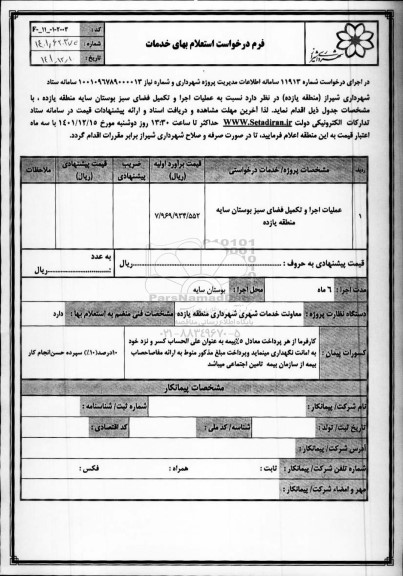 فرم درخواست استعلام بهای خدمات
کد :
شماره :
تاریخ :
در اجرای درخواست شماره ۱۱۹۱۳ سامانه اطلاعات مدیریت پروژه شهرداری و شماره نیاز ۱۰۰۱۰۹۶۷۸۹۰۰۰۰۱۳ سامانه ستاد
شهرداری شیراز (منطقه یازده) در نظر دارد نسبت به عملیات اجرا و تکمیل فضای سبز بوستان سایه منطقه یازده ، با
مشخصات جدول ذیل اقدام نماید. لذا آخرین مهلت مشاهده و دریافت اسناد و ارائه پیشنهادات قیمت در سامانه ستاد
تدارکات الکترونیکی دولت WWW.Setadiran.ir حداکثر تا ساعت ۱۳:۳۰ روز دوشنبه مورخ ۱۴۰۱/۱۲/۱۵ با سه ماه
اعتبار قیمت به این منطقه اعلام فرمایید، تا در صورت صرفه و صلاح شهرداری شیراز برابر مقررات اقدام گردد.
ردیف مشخصات پروژه/ خدمات درخواستی قیمت برآورد اولیه (ریال) ضریب پیشنهادی قیمت پیشنهادی (ریال) ملاحظات
۱ عملیات اجرا و تکمیل فضای سبز بوستان سایه منطقه یازده ۷/۹۶۹/۹۳۴/۵۵۲
قیمت پیشنهادی به حروف : ریال به عدد : ریال
مدت اجرا : ۶ ماه محل اجرا : بوستان سایه
دستگاه نظارت پروژه : معاونت خدمات شهری شهرداری منطقه یازده مشخصات فنی منضم به استعلام بها : دارد
کسورات پیمان : کارفرما از هر پرداخت معادل ۵٪بیمه به عنوان علی الحساب کسر و نزد خود
به امانت نگهداری مینماید وپرداخت مبلغ مذکور منوط به ارائه مفاصاحساب
بیمه از سازمان بیمه تامین اجتماعی میباشد
۱۰درصد(۱۰٪) سپرده حسن انجام کار
مشخصات پیمانکار
نام شرکت/ پیمانکار : شماره ثبت/ شناسنامه :
تاریخ ثبت/ تولد : شناسه/ کد ملی : کد اقتصادی :
آدرس شرکت/ پیمانکار :
شماره تلفن شرکت/ پیمانکار : ثابت : همراه : فکس :
مهر و امضاء شرکت/ پیمانکار :